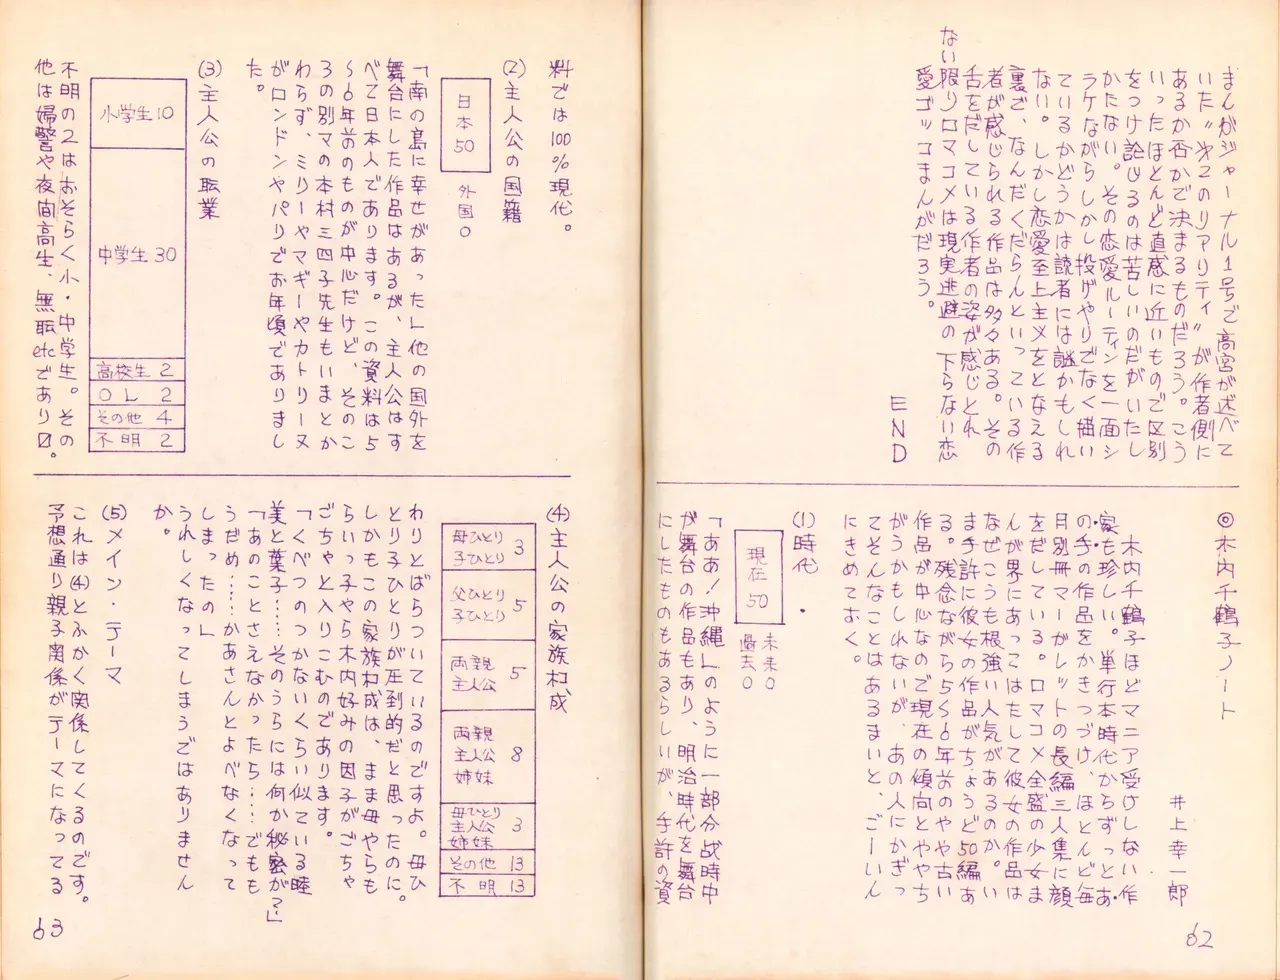 まんがジャーナル1号で高宮が述べて
いた〝第2のリアリティ〟が作者側に
あるか否かで決まるものだろう。こう
いったほとんど直感に近いもので区別
をつけ論じるのは苦しいのだがいたし
かたない。その恋愛ルーティンを一面シ
ラケながらしかし投げやりでなく描い
ているかどうかは読者には謎かもしれ
ない。しかし恋愛至上主メをとなえる
裏で、なんだくだらんといっている作
者が感じられる作品は多々ある。その
舌をだしている作者の姿が感じとれ
ない限りロマコメは現実逃避の下らない恋
愛ゴッコまんがだろう。
END
◎木内千鶴子ノート
井上幸一郎
木内千鶴子ほどマニア受けしない作
家も珍しい。単行本時代からずっとあ
の手の作品をかきつづけ、ほとんど毎
月別冊マーガレットの長編三人集に顔
をだしている。ロマコメ全盛の少女ま
んが界にあってはたして彼女の作品は
なぜこうも根強い人気があるのか。い
ま手許に彼女の作品がちょうど50編あ
る。残念ながら5〜6年前のやや古い
作品が中心なので現在の傾向とややち
がうかもしれないが、あの人にかぎっ
てそんなことはあるまいと、ごーいん
にきめておく。
(1)時代
現在50
未来0
過去0
「ああ!沖縄」のように一部分战時中
が舞台の作品もあり、明治時代を舞台
にしたものもあるらしいが、手許の資
62
料では100%現代。
(2)主人公の国籍
日本50
外国0
「南の島に幸せがあった」他の国外を
舞台にした作品はあるが、主人公はす
べて日本人であります。この資料は5
〜6年前のものが中心だけど、そのこ
ろの別マの本村三四子先生もいまとか
わらず、ミリーやマギーやカトリーヌ
がロンドンやパリでお年頃でありまし
た。
(3)主人公の転業
小学生10
中学生30
高校生2
OL2
その他4
不明2
不明の2はおそらく小・中学生。その
他は婦警や夜間高生、無転etcであり〼。
(4)主人公の家族构成
母ひとり
子ひとり 3
父ひとり
子ひとり 5
両親
主人公 5
両親
主人公
姉妹 8
母ひとり
主人公
姉妹 3
その他13
不明13
わりとばらついているのですよ。母ひ
とり子ひとりが圧到的だと思ったのに。
しかもこの家族构成は、まま母やらも
らいっ子やら木内好みの因子がごちゃ
ごちゃと入りこむのであります。
「くべつのつかないくらい似ている睦
美と葉子……そのうらには何か秘密が?」
「あのことさえなかったら……でもも
うだめ……かあさんとよべなくなって
しまったの」
うれしくなってしまうではありません
か。
(5)メイン・テーマ
これは(4)とふかく関係してくるのです。
予想通り親子関係がテーマになってる
63